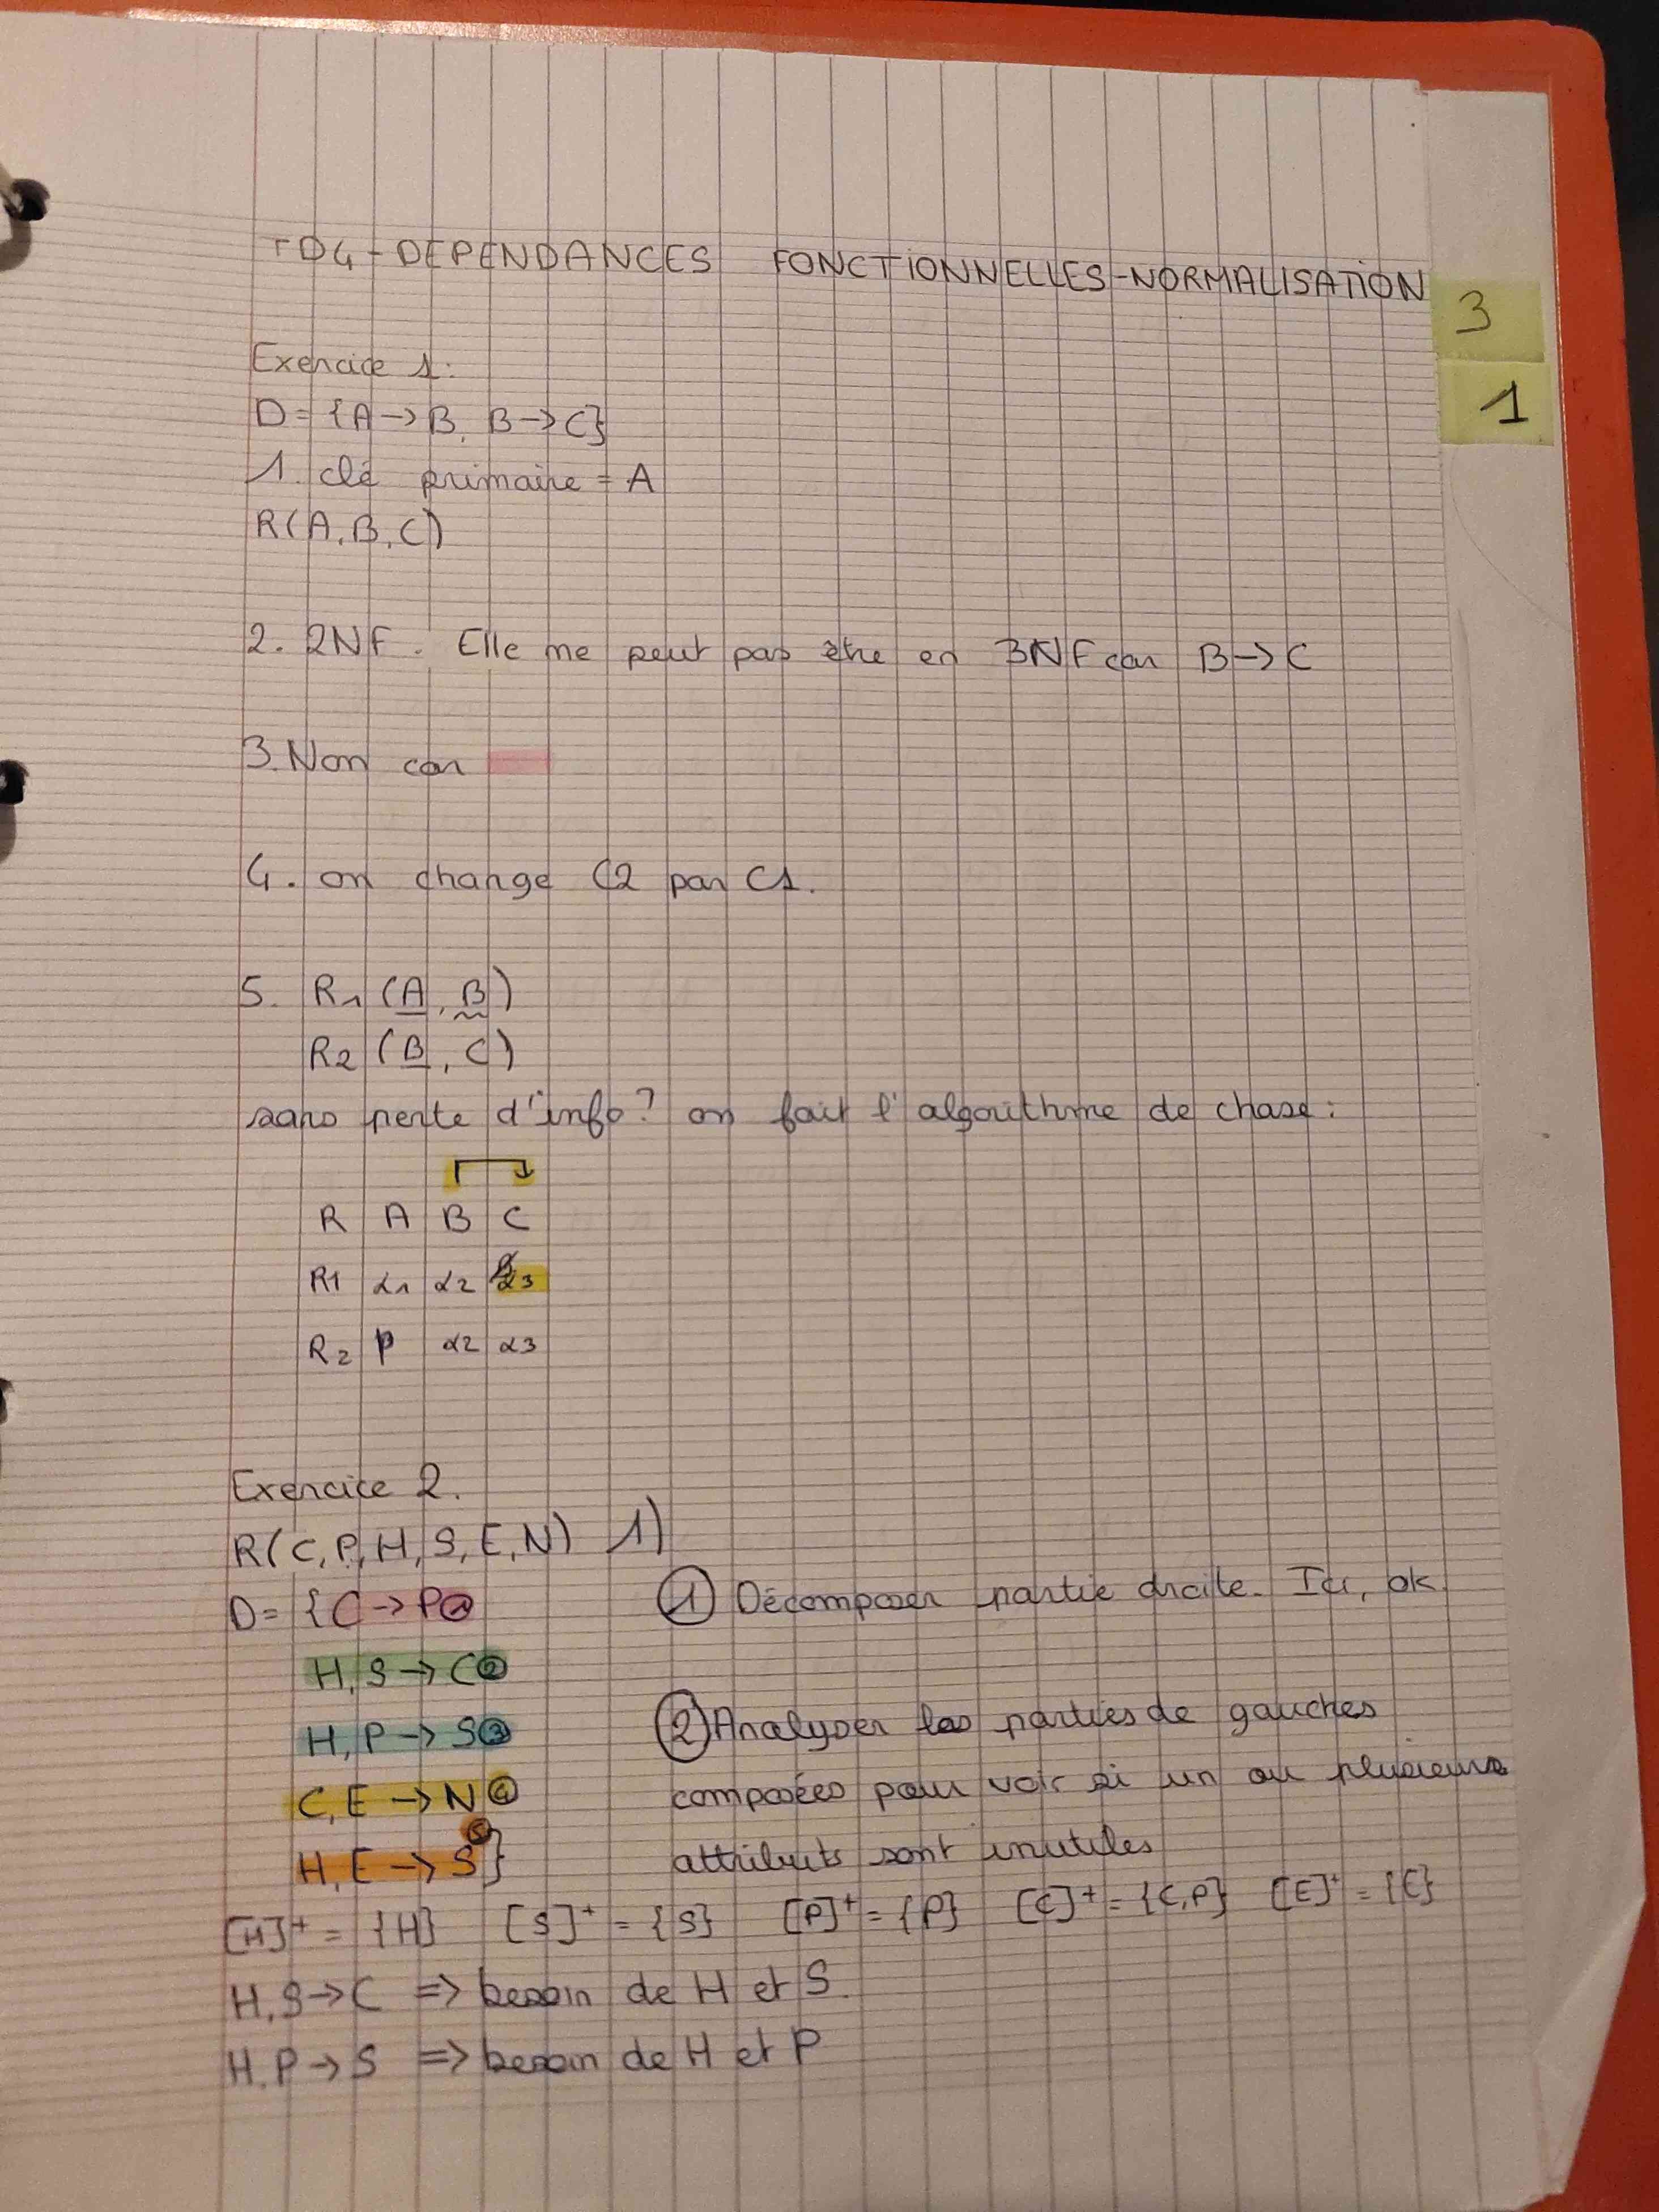 TD4 - DEPENDANCES FONCTIONNELLES - NORMALISATION
3
1
Exercice 1:
D = {A → B, B → C}
1. clé primaire = A
R(A, B, C)
2. 2NF. Elle ne peut pas être en 3NF car B → C
3. Non car
4. on change C2 par C1.
5. R1 (A, B)
R2 (B, C)
sans perte d'info? on fait l'algorithme de chase:
R A B C
R1 α1 α2 α3
R2 β α2 α3
Exercice 2.
R(C, P, H, S, E, N) 1)
D = {C → P ①
① Décomposer partie droite. Ici, ok.
H, S → C ②
H, P → S ③
② Analyser les parties de gauches
C, E → N ④
composées pour voir si un ou plusieurs
H, E → S ⑤}
attributs sont inutiles
[H]+ = {H} [S]+ = {S} [P]+ = {P} [C]+ = {C, P} [E]+ = {E}
H, S → C => besoin de H et S.
H, P → S => besoin de H et P